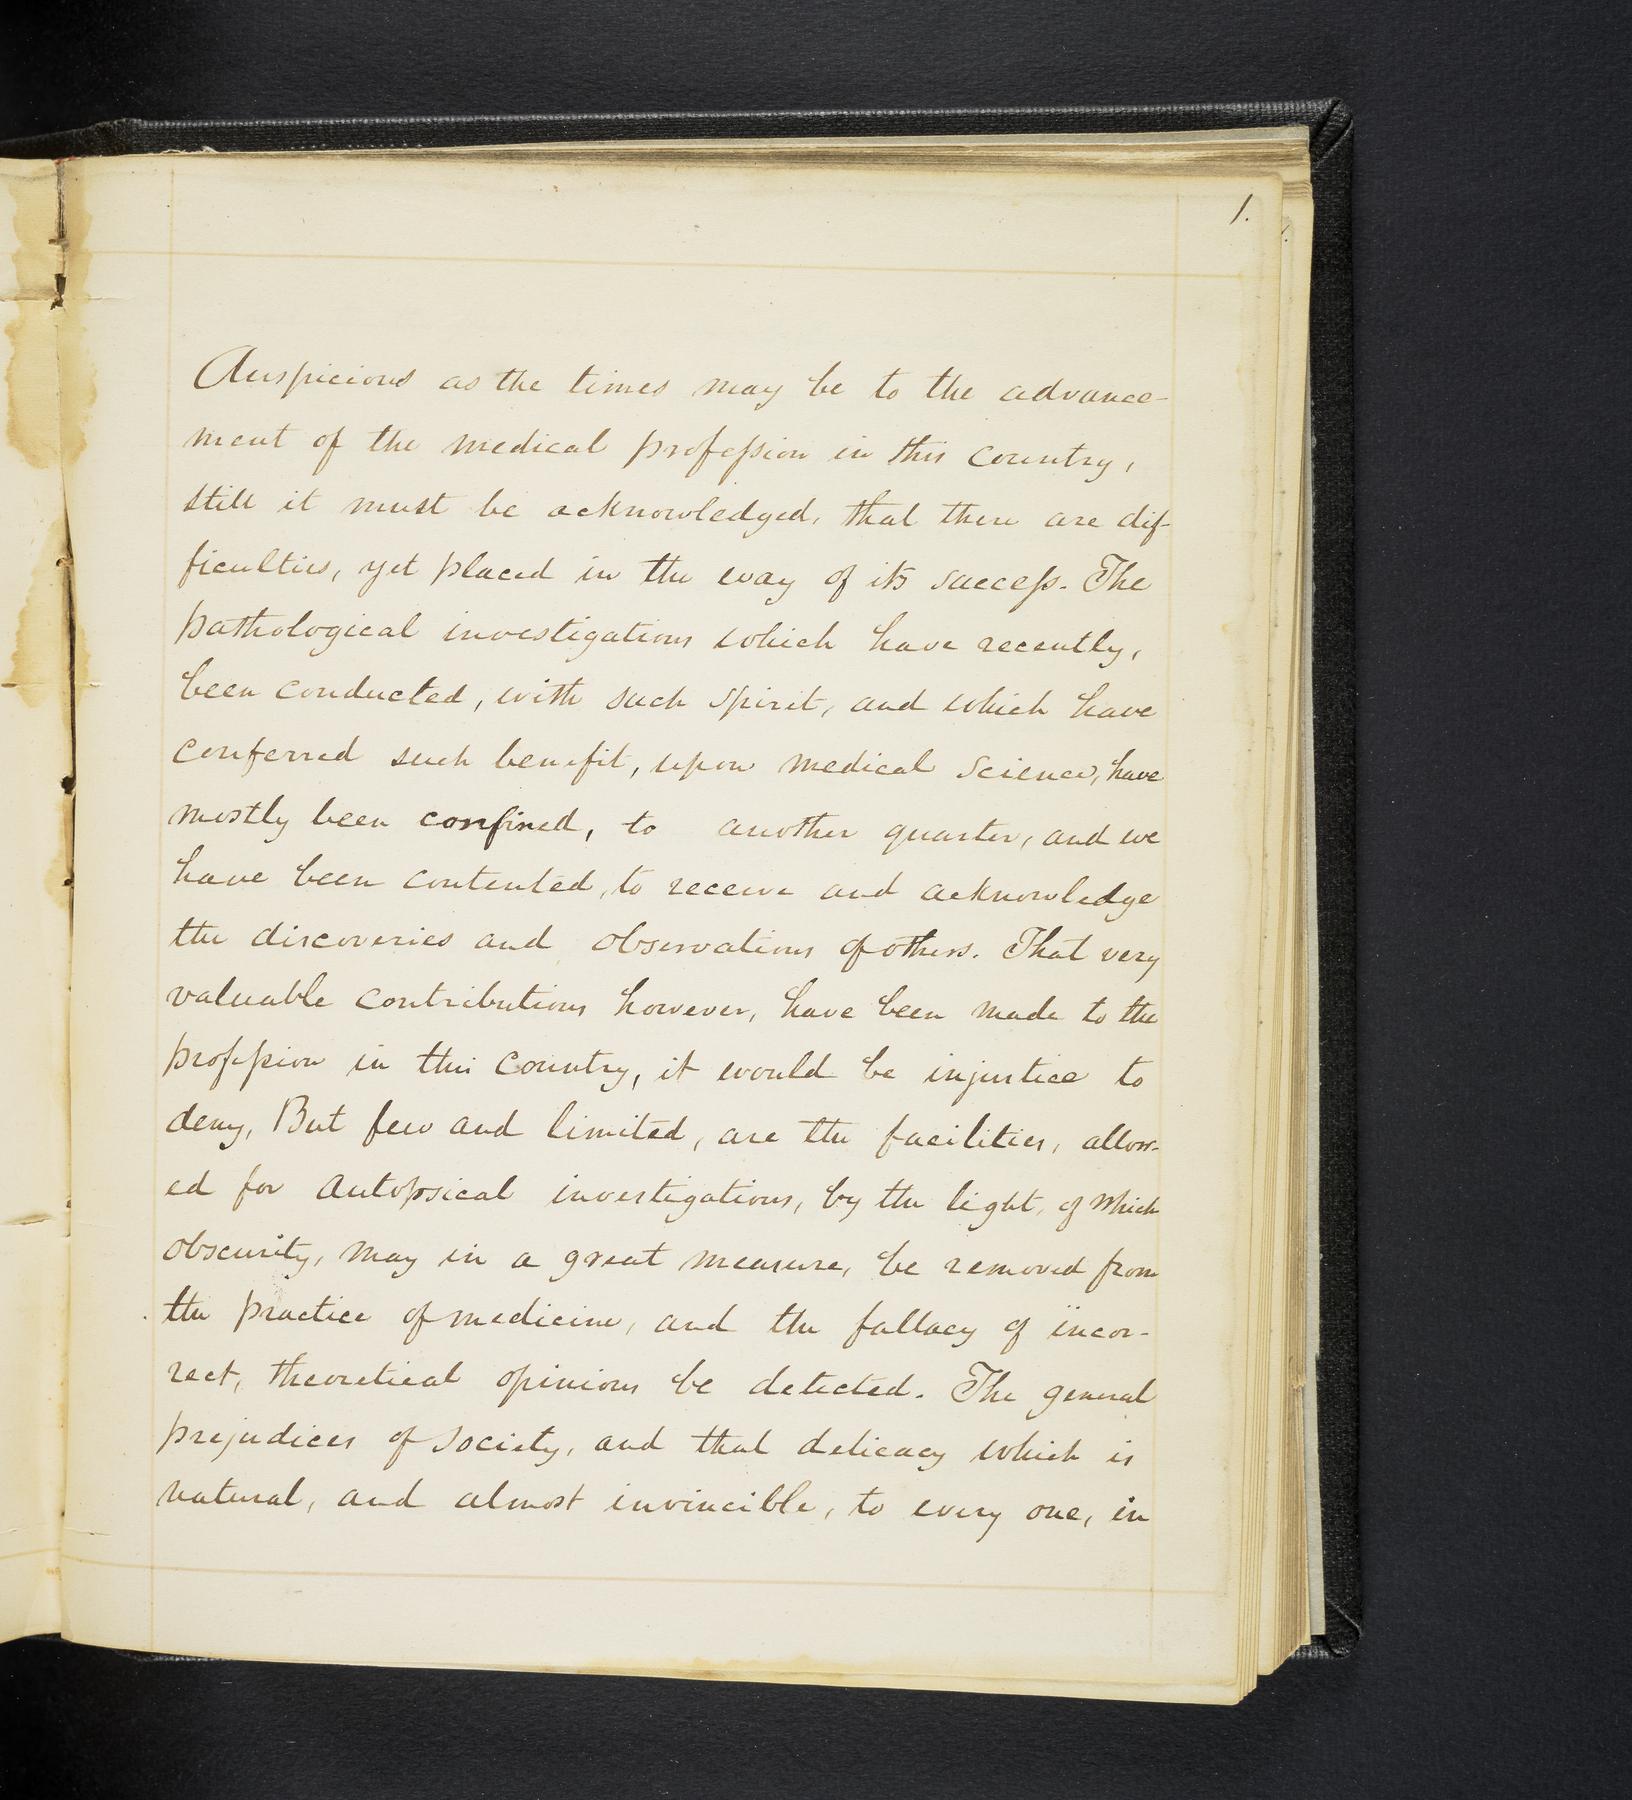 1.
Auspicious as the times may be to the advance-
ment of the medical profession in this country,
still it must be acknowledged, that there are dif-
ficulties, yet placed in the way of its success. The
pathological investigations which have recently,
been conducted, with such spirit, and which have
conferred such benefit, upon medical science, have
mostly been confined, to another quarter, and we
have been contented, to receive and acknowledge
the discoveries and observations of others. That very
valuable contributions however, have been made to the
profession in this country, it would be injustice to
deny, But few and limited, are the facilities, allow-
ed for autopsical investigations, by the light, of which
obscurity, may in a great measure, be removed from
the practice of medicine, and the fallacy of incor-
rect, theoretical opinions be detected. The general
prejudices of society, and that delicacy which is
natural, and almost invincible, to every one, in